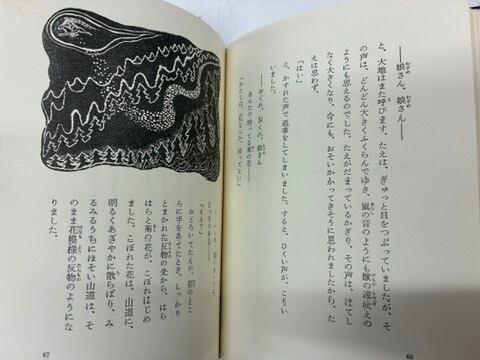 ――娘さん、娘さん――
と、大地はまた呼びます。たえは、ぎゅっと目をつぶっていましたが、そ
の声は、どんどん大きくふくらんでゆき、嵐の音のようにも獣の遠吠えの
ようにも思えるのでした。たえがだまっているかぎり、その声は、はてし
なく大きくなり、今にも、おそいかかってきそうに思われましたから、た
えは思わず、
「はい」
と、かすれた声で返事をしてしまいました。すると、ひくい声が、こうい
いました。
――おくれ、おくれ、娘さん
あんたの持ってる菊の花――
「わたしは、花なんか、持ってない」
66
「ええ?」
おどろいてたえが、
ろに手をあてたとき、しっかり
とまかれた反物の先から、はら
はらと菊の花が、こぼれはじめ
ました。こぼれた花は、山道に、
明るくあざやかに散らばり、み
るみるうちにほそい山道は、そ
のまま花模様の反物のようにな
りました。
67